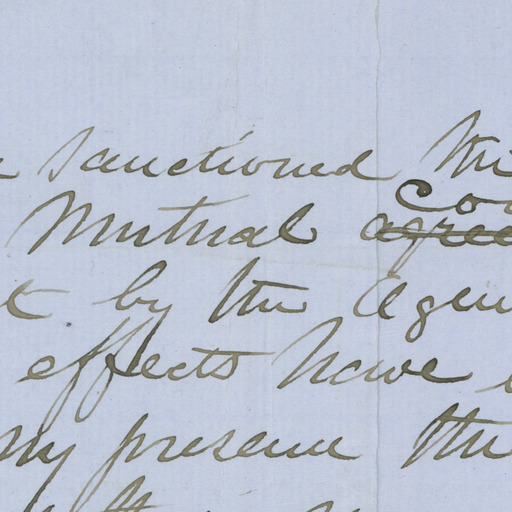 sanctioned
Co
Mutual agree
t by the Agen
effects have
my presence the